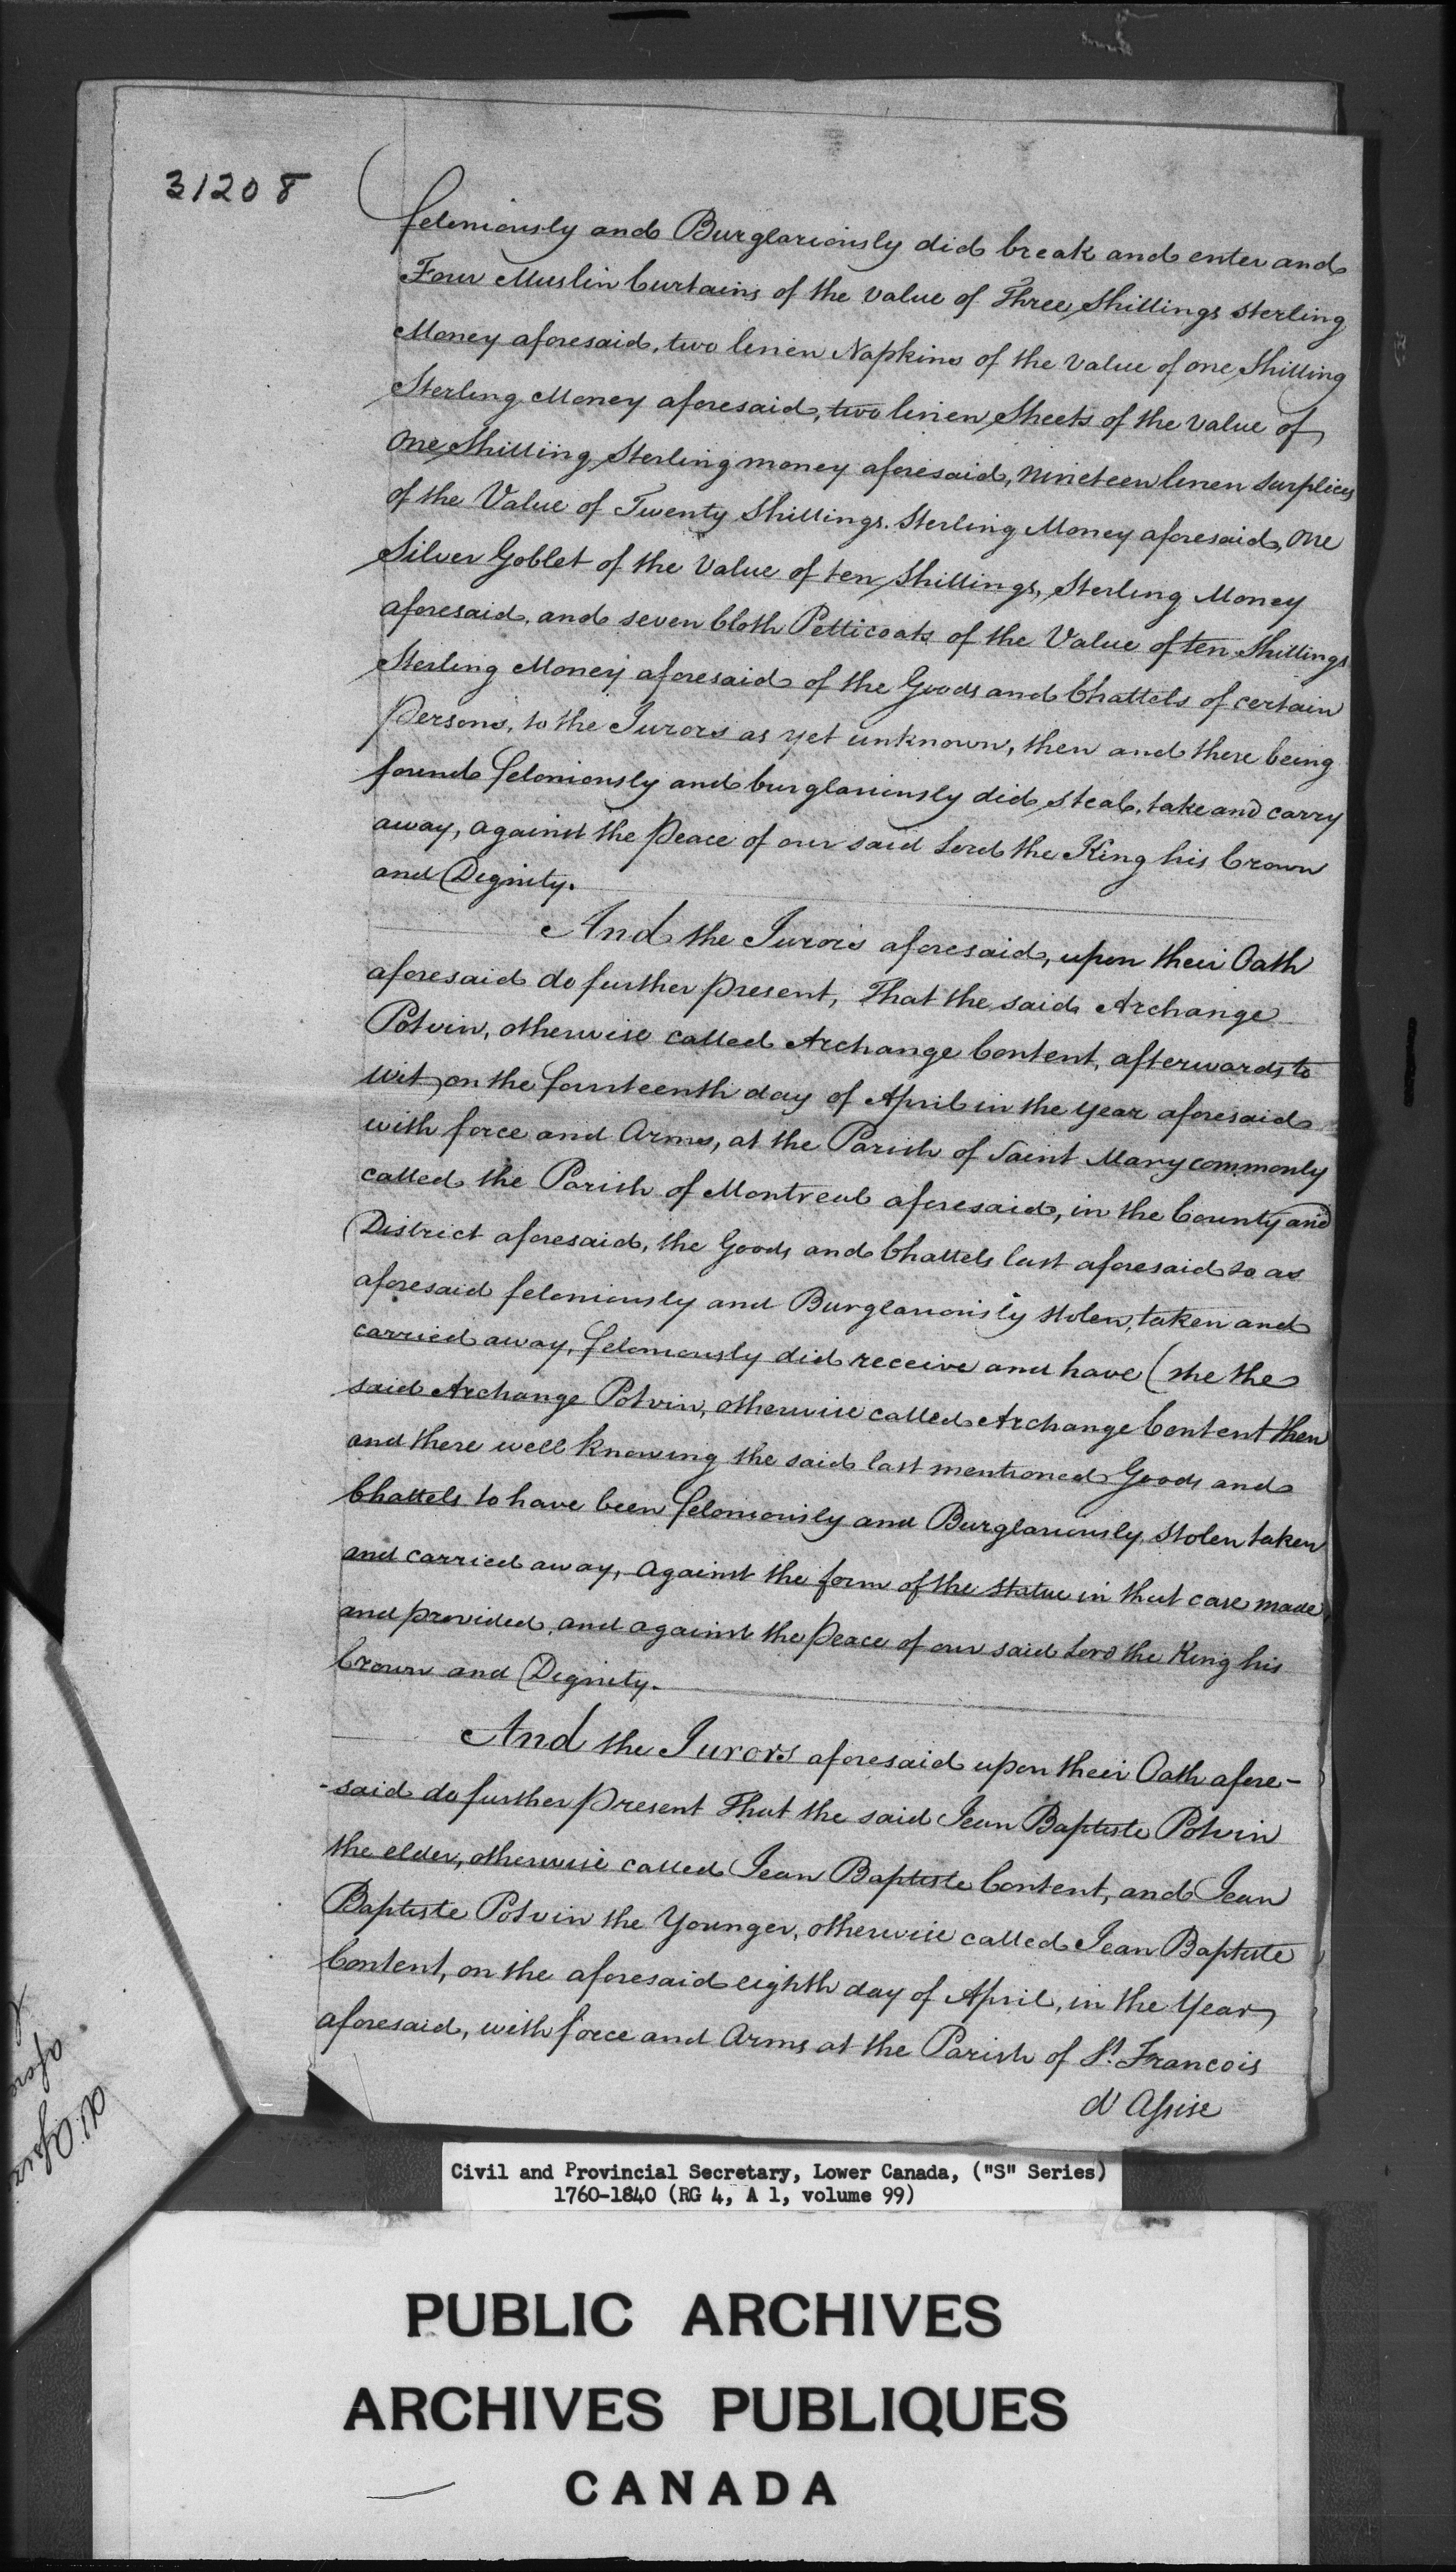 31208
feloniously and Burglariously did break and enter and
Four Muslin Curtains of the value of Three Shillings sterling
Money aforesaid, two linen Napkins of the value of one Shilling
Sterling Money aforesaid, two linen Sheets of the value of
one Shilling Sterling money aforesaid, nineteen linen surplices
of the Value of Twenty Shillings. Sterling Money aforesaid, one
Silver Goblet of the Value of ten Shillings, Sterling Money
aforesaid, and seven Cloth Petticoats of the Value of ten Shillings
Sterling Money aforesaid of the Goods and Chattels of certain
Persons, to the Jurors as yet unknown, then and there being
found feloniously and burglariously did steal, take and carry
away, against the Peace of our said Lord the King his Crown
and Dignity.
And the Jurors aforesaid, upon their Oath
aforesaid do further present, That the said Archange
Potvin, otherwise called Archange Content, afterwards to
wit, on the fourteenth day of April in the year aforesaid
with force and Arms, at the Parish of Saint Mary commonly
called the Parish of Montreal aforesaid, in the County and
District aforesaid, the Goods and Chattels last aforesaid so as
aforesaid feloniously and Burglariously stolen, taken and
carried away, feloniously did receive and have (she the
said Archange Potvin, otherwise called Archange Content then
and there well knowing the said last mentioned Goods and
Chattels to have been feloniously and Burglariously, stolen taken
and carried away, against the form of the Statue in that case made
and provided, and against the Peace of our said Lord the King his
Crown and Dignity.
And the Jurors aforesaid upon their Oath afore-
-said do further present That the said Jean Baptiste Potvin
the elder, otherwise called Jean Baptiste Content, and Jean
Baptiste Potvin the Younger, otherwise called Jean Baptiste
Content, on the aforesaid eighth day of April, in the Year
aforesaid, with force and Arms at the Parish of St. Francois
d'Assise
Civil and Provincial Secretary, Lower Canada, ("S" Series)
1760-1840 (RG 4, A 1, volume 99)
PUBLIC ARCHIVES
ARCHIVES PUBLIQUES
CANADA